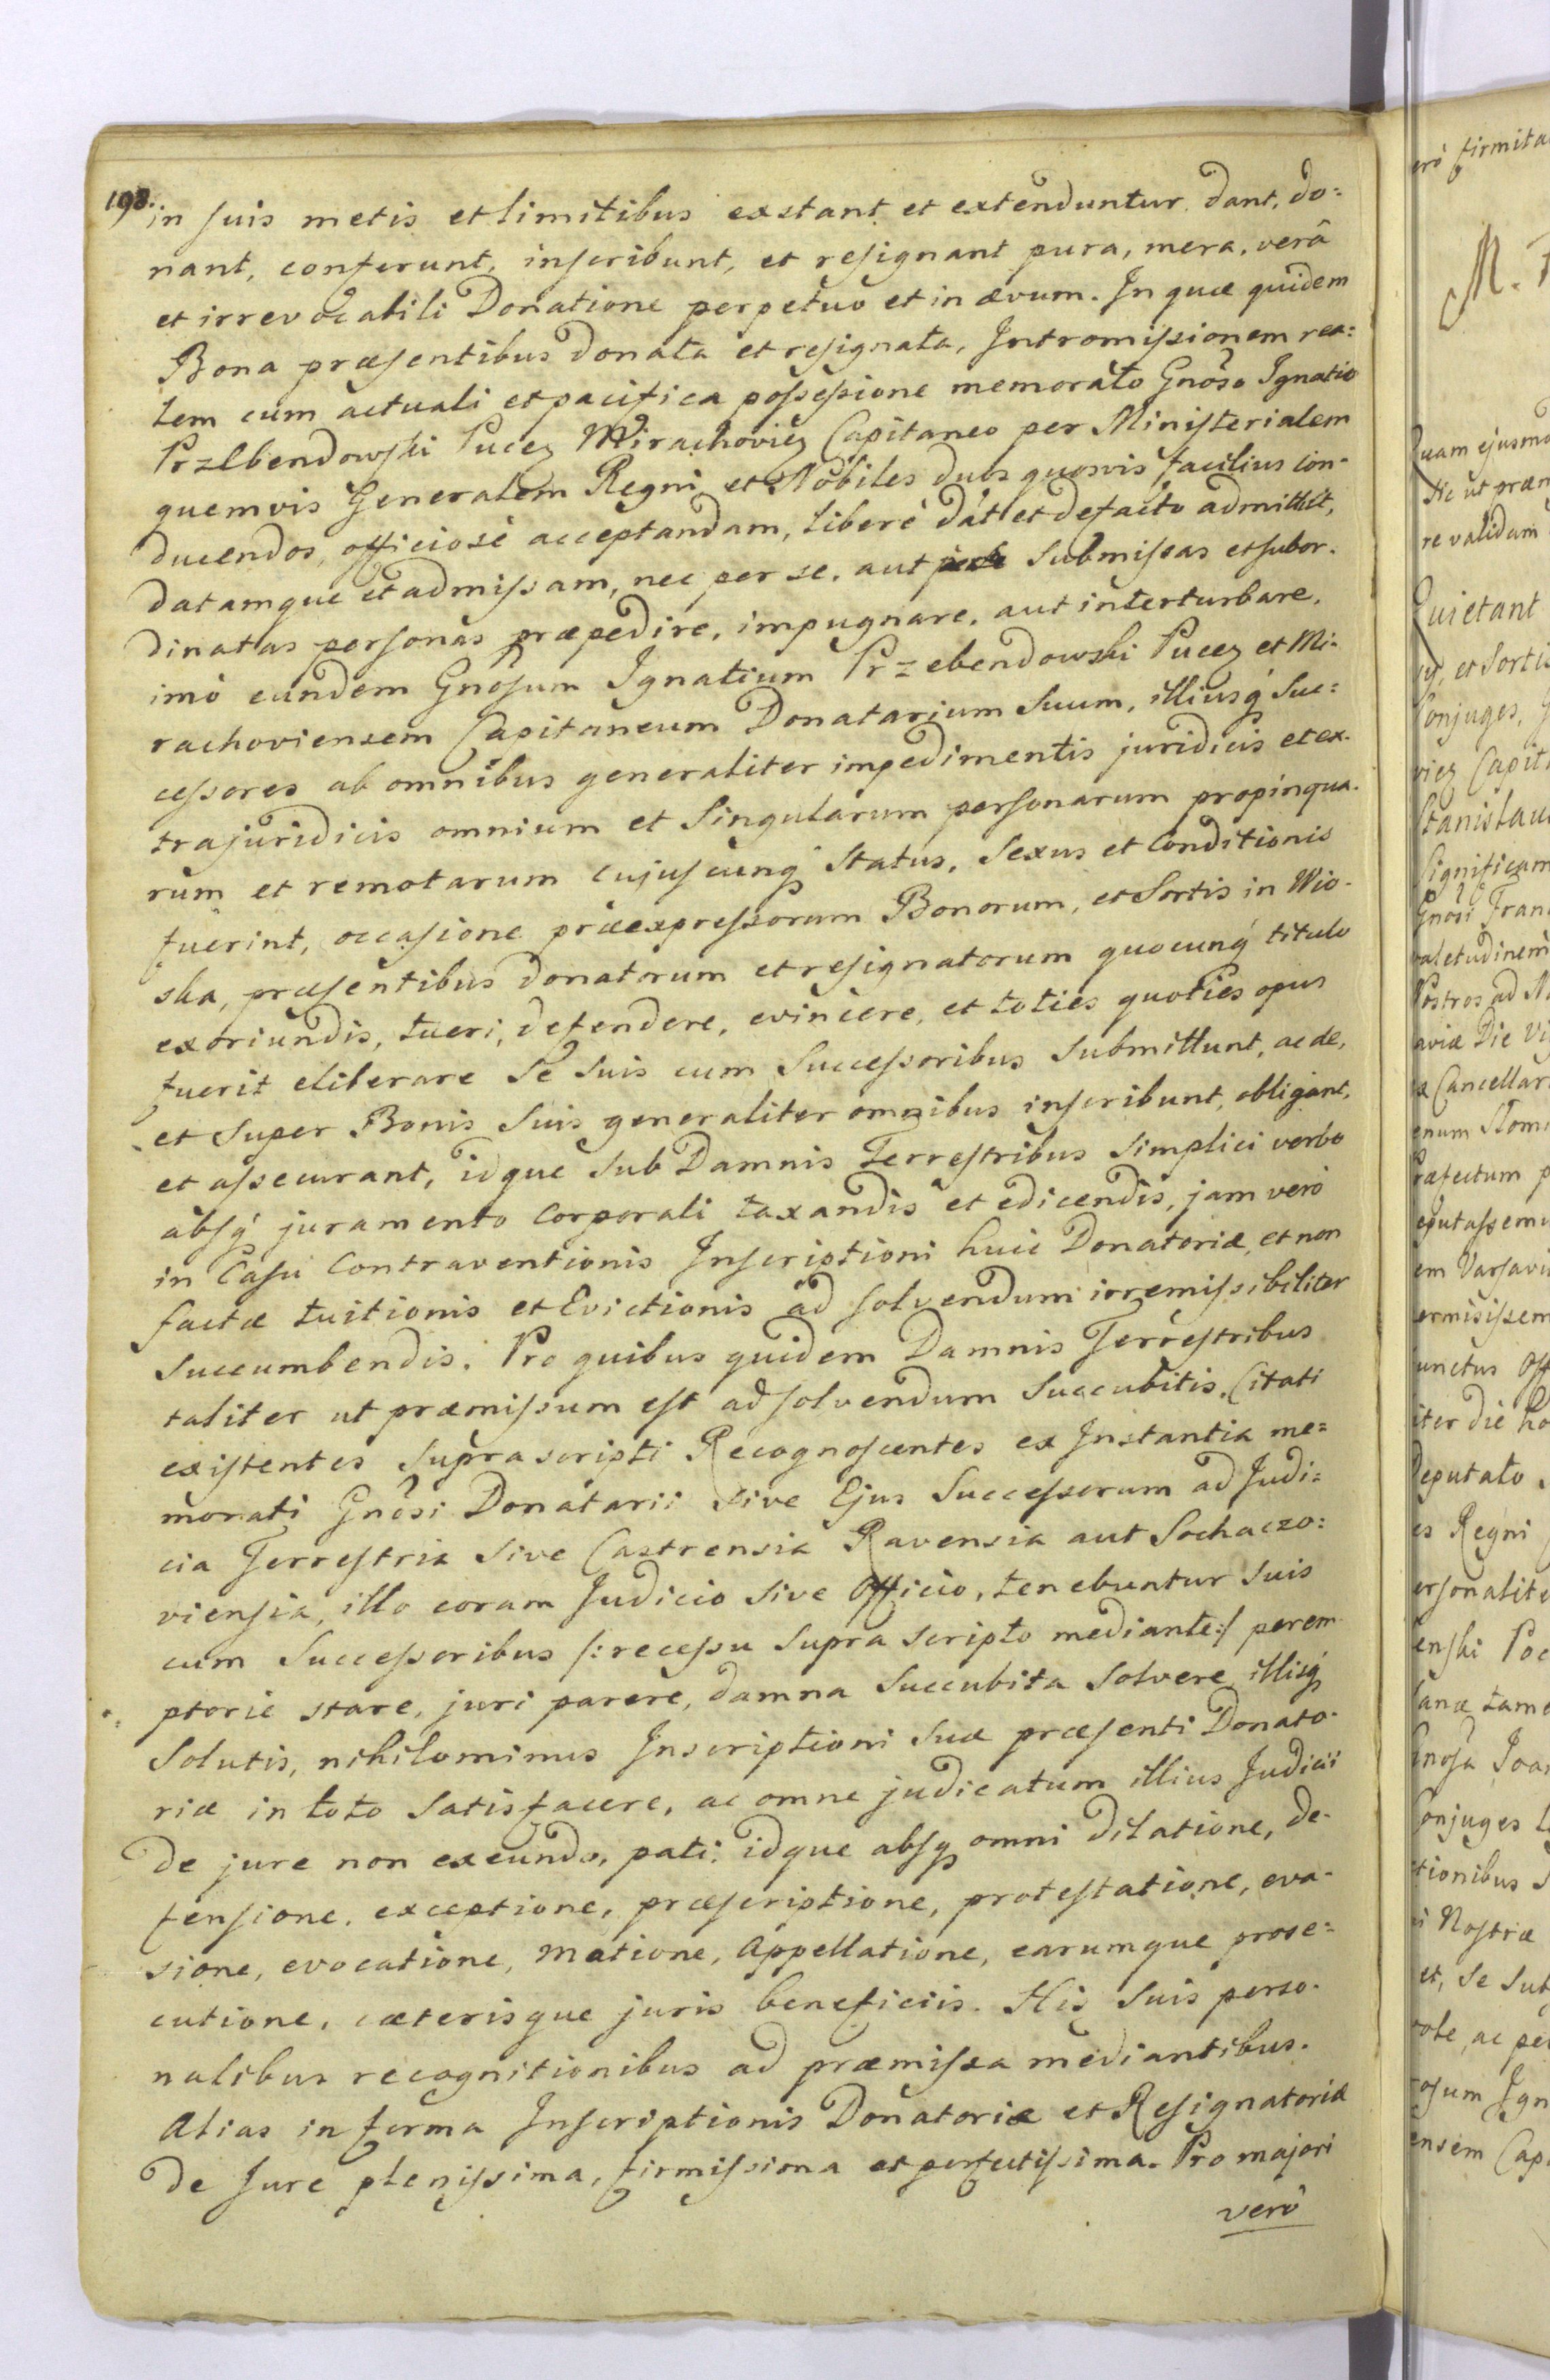 198.
in suis metis et limitibus exstant et extenduntur dant, do=
nant, conferunt, inscribunt, et resignant pura, mera, verâ
et irrevocabili Donatione perpetuo et in ævum. In quæ quidem
Bona præsentibus donata et resignata, Intromissionem rea=
lem cum actuali et pacifica possessione memorato Gnoso Ignatio
Przebendowski Pucez Mirachoviez Capitaneo per Ministerialem
quemvis Generalem Regni et Nobiles duos quosvis facilius con-
ducendos, officiosè acceptandam, liberè dat et defacto admittit,
datamque et admissam, nec per se, aut submissas et subor-
dinatas personas præpedire, impugnare, aut interturbare,
imò eundem Gnosum Ignatium Przebendowski Pucez et Mi-
rachoviensem Capitaneum Donatarium Suum, illiusq́ Suc=
cessores ab omnibus generaliter impedimentis juridicis et ex-
trajuridicis omnium et Singularum personarum propinqua-
rum et remotarum cujuscunq́ Status, Sexus et Conditionis
fuerint, occasione præexpressorum Bonorum, et Sortis in Wio-
ska, præsentibus donatorum et resignatorum quocunq́ titulo
exoriundis, tueri, defendere, evincere, et toties quoties opus
fuerit eliberare Se Suis cum Successoribus Submittunt, ac de,
et Super Bonis Suis generaliter omnibus inscribunt, obligant,
et assecurant, idque Sub Damnis Terrestribus Simplici verbo
absq́ juramento Corporali taxandis et edicendis, jam verò
in Casu Contraventionis Inscriptioni huic Donatoriæ, et non
factæ tuitionis et Evictionis ad solvendum irremissibiliter
Succumbendis. Pro quibus quidem Damnis Terrestribus
taliter ut præmissum est ad solvendum Succubitis, Citati
existentes Suprascripti Recognoscentes ex Instantia me=
morati Gnosi Donatarii sive Ejus Successorum ad Judi=
cia Terrestria Sive Castrensia Ravensia aut Sochaczo=
viensia, illo coram Judicio Sive Officio, tenebuntur Suis
cum Successoribus /: recessu Supra Scripto mediante :/ perem
ptorie stare, juri parere, damna Succubita Solvere, illisq́
Solutis, nihilominus Inscriptioni Suæ præsenti Donato-
riæ in toto Satisfacere, ac omne judicatum illius Judicii
de jure non exeundo, pati: idque absq́ omni dilatione, de-
fensione, exceptione, præscriptione, protestatione, eva-
sione, evocatione, Motione, Appellatione, earumque prose=
cutione, cæterisque juris beneficiis. His Suis perso-
nalibus recognitionibus ad præmissa mediantibus.
Alias in forma Inscriptionis Donatoriæ et Resignatoriæ
de Jure plenissima, firmissima et perfectissima. Pro majori
verò
erò firmita
M.
Quam ejusmo
re validam
Quietant
et Sortis
Conjuges,
viez Capit
Stanislau
Significam
Gnosi Fran
valetudinem
Nostros ad
aviæ Die Vi
Cancellar
Præfectum p
eputassem
em Varsavi
ermisissem
unctus Off
iter die ho
Deputato
es Regni
ersonalite
enski Poc
anæ tame
Gnosa Joa
Conjuges
tionibus
Nostræ
et, Se Sub
ac per
osum Ign
ensem Cap